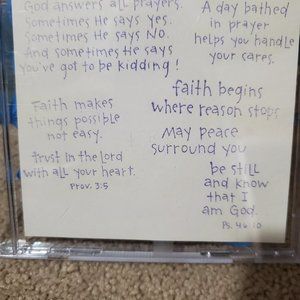 God answers all prayers.
Sometimes He says yes.
Sometimes He says NO.
And sometimes He says
you've got to be kidding!
A day bathed
in prayer
helps you handle
your cares.
faith begins
where reason stops
Faith makes
things possible
not easy.
May peace
surround you
trust in the Lord
with all your heart.
Prov. 3:5
be still
and know
that I
am God.
Ps. 46:10